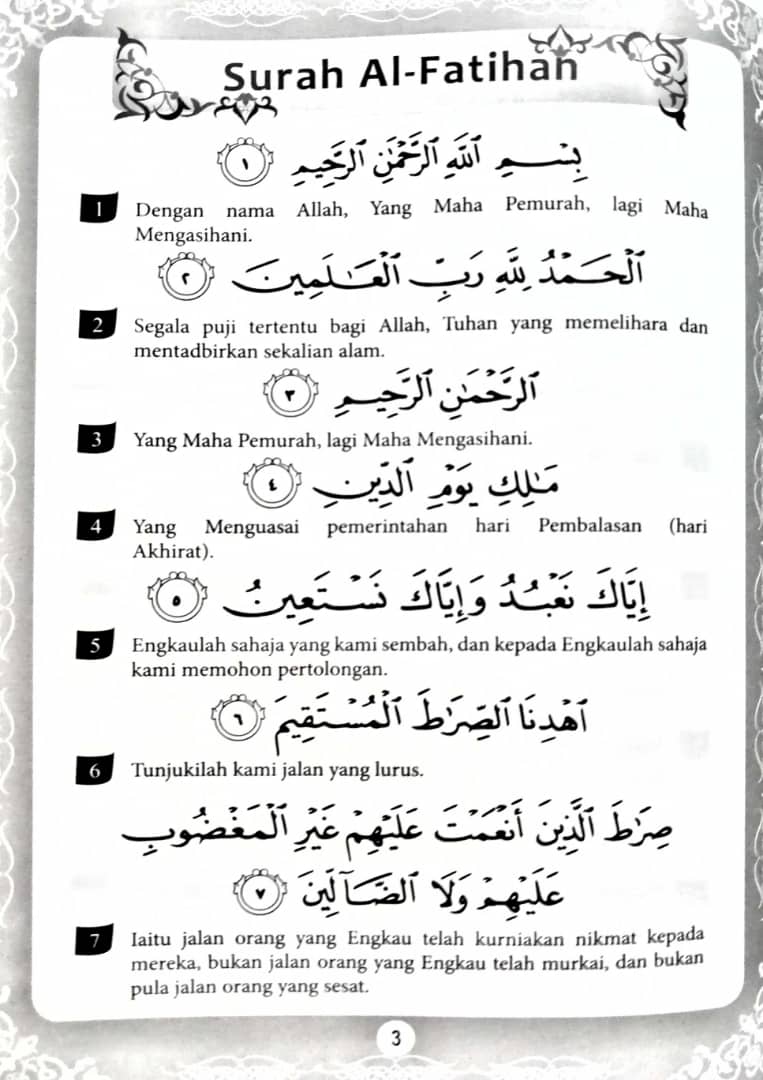 Surah Al-Fatihah
بِسْمِ ٱللَّهِ ٱلرَّحْمَٰنِ ٱلرَّحِيمِ ١
1 Dengan nama Allah, Yang Maha Pemurah, lagi Maha
Mengasihani.
ٱلْحَمْدُ لِلَّهِ رَبِّ ٱلْعَـٰلَمِينَ ٢
2 Segala puji tertentu bagi Allah, Tuhan yang memelihara dan
mentadbirkan sekalian alam.
ٱلرَّحْمَٰنِ ٱلرَّحِيمِ ٣
3 Yang Maha Pemurah, lagi Maha Mengasihani.
مَـٰلِكِ يَوْمِ ٱلدِّينِ ٤
4 Yang Menguasai pemerintahan hari Pembalasan (hari
Akhirat).
إِيَّاكَ نَعْبُدُ وَإِيَّاكَ نَسْتَعِينُ ٥
5 Engkaulah sahaja yang kami sembah, dan kepada Engkaulah sahaja
kami memohon pertolongan.
ٱهْدِنَا ٱلصِّرَٰطَ ٱلْمُسْتَقِيمَ ٦
6 Tunjukilah kami jalan yang lurus.
صِرَٰطَ ٱلَّذِينَ أَنْعَمْتَ عَلَيْهِمْ غَيْرِ ٱلْمَغْضُوبِ
عَلَيْهِمْ وَلَا ٱلضَّآلِّينَ ٧
7 Iaitu jalan orang yang Engkau telah kurniakan nikmat kepada
mereka, bukan jalan orang yang Engkau telah murkai, dan bukan
pula jalan orang yang sesat.
3